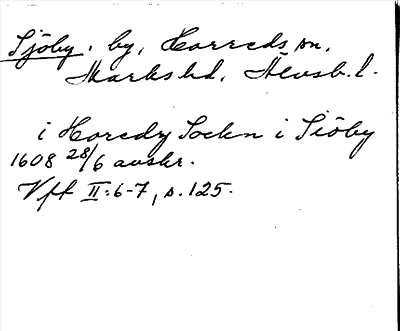 Sjöby. by, Horreds sn,
Marks hd, Älvsb. l.
i Horedy Sockn i Siöby
1608 28/6 avskr.
Vff II:6-7, s. 125.